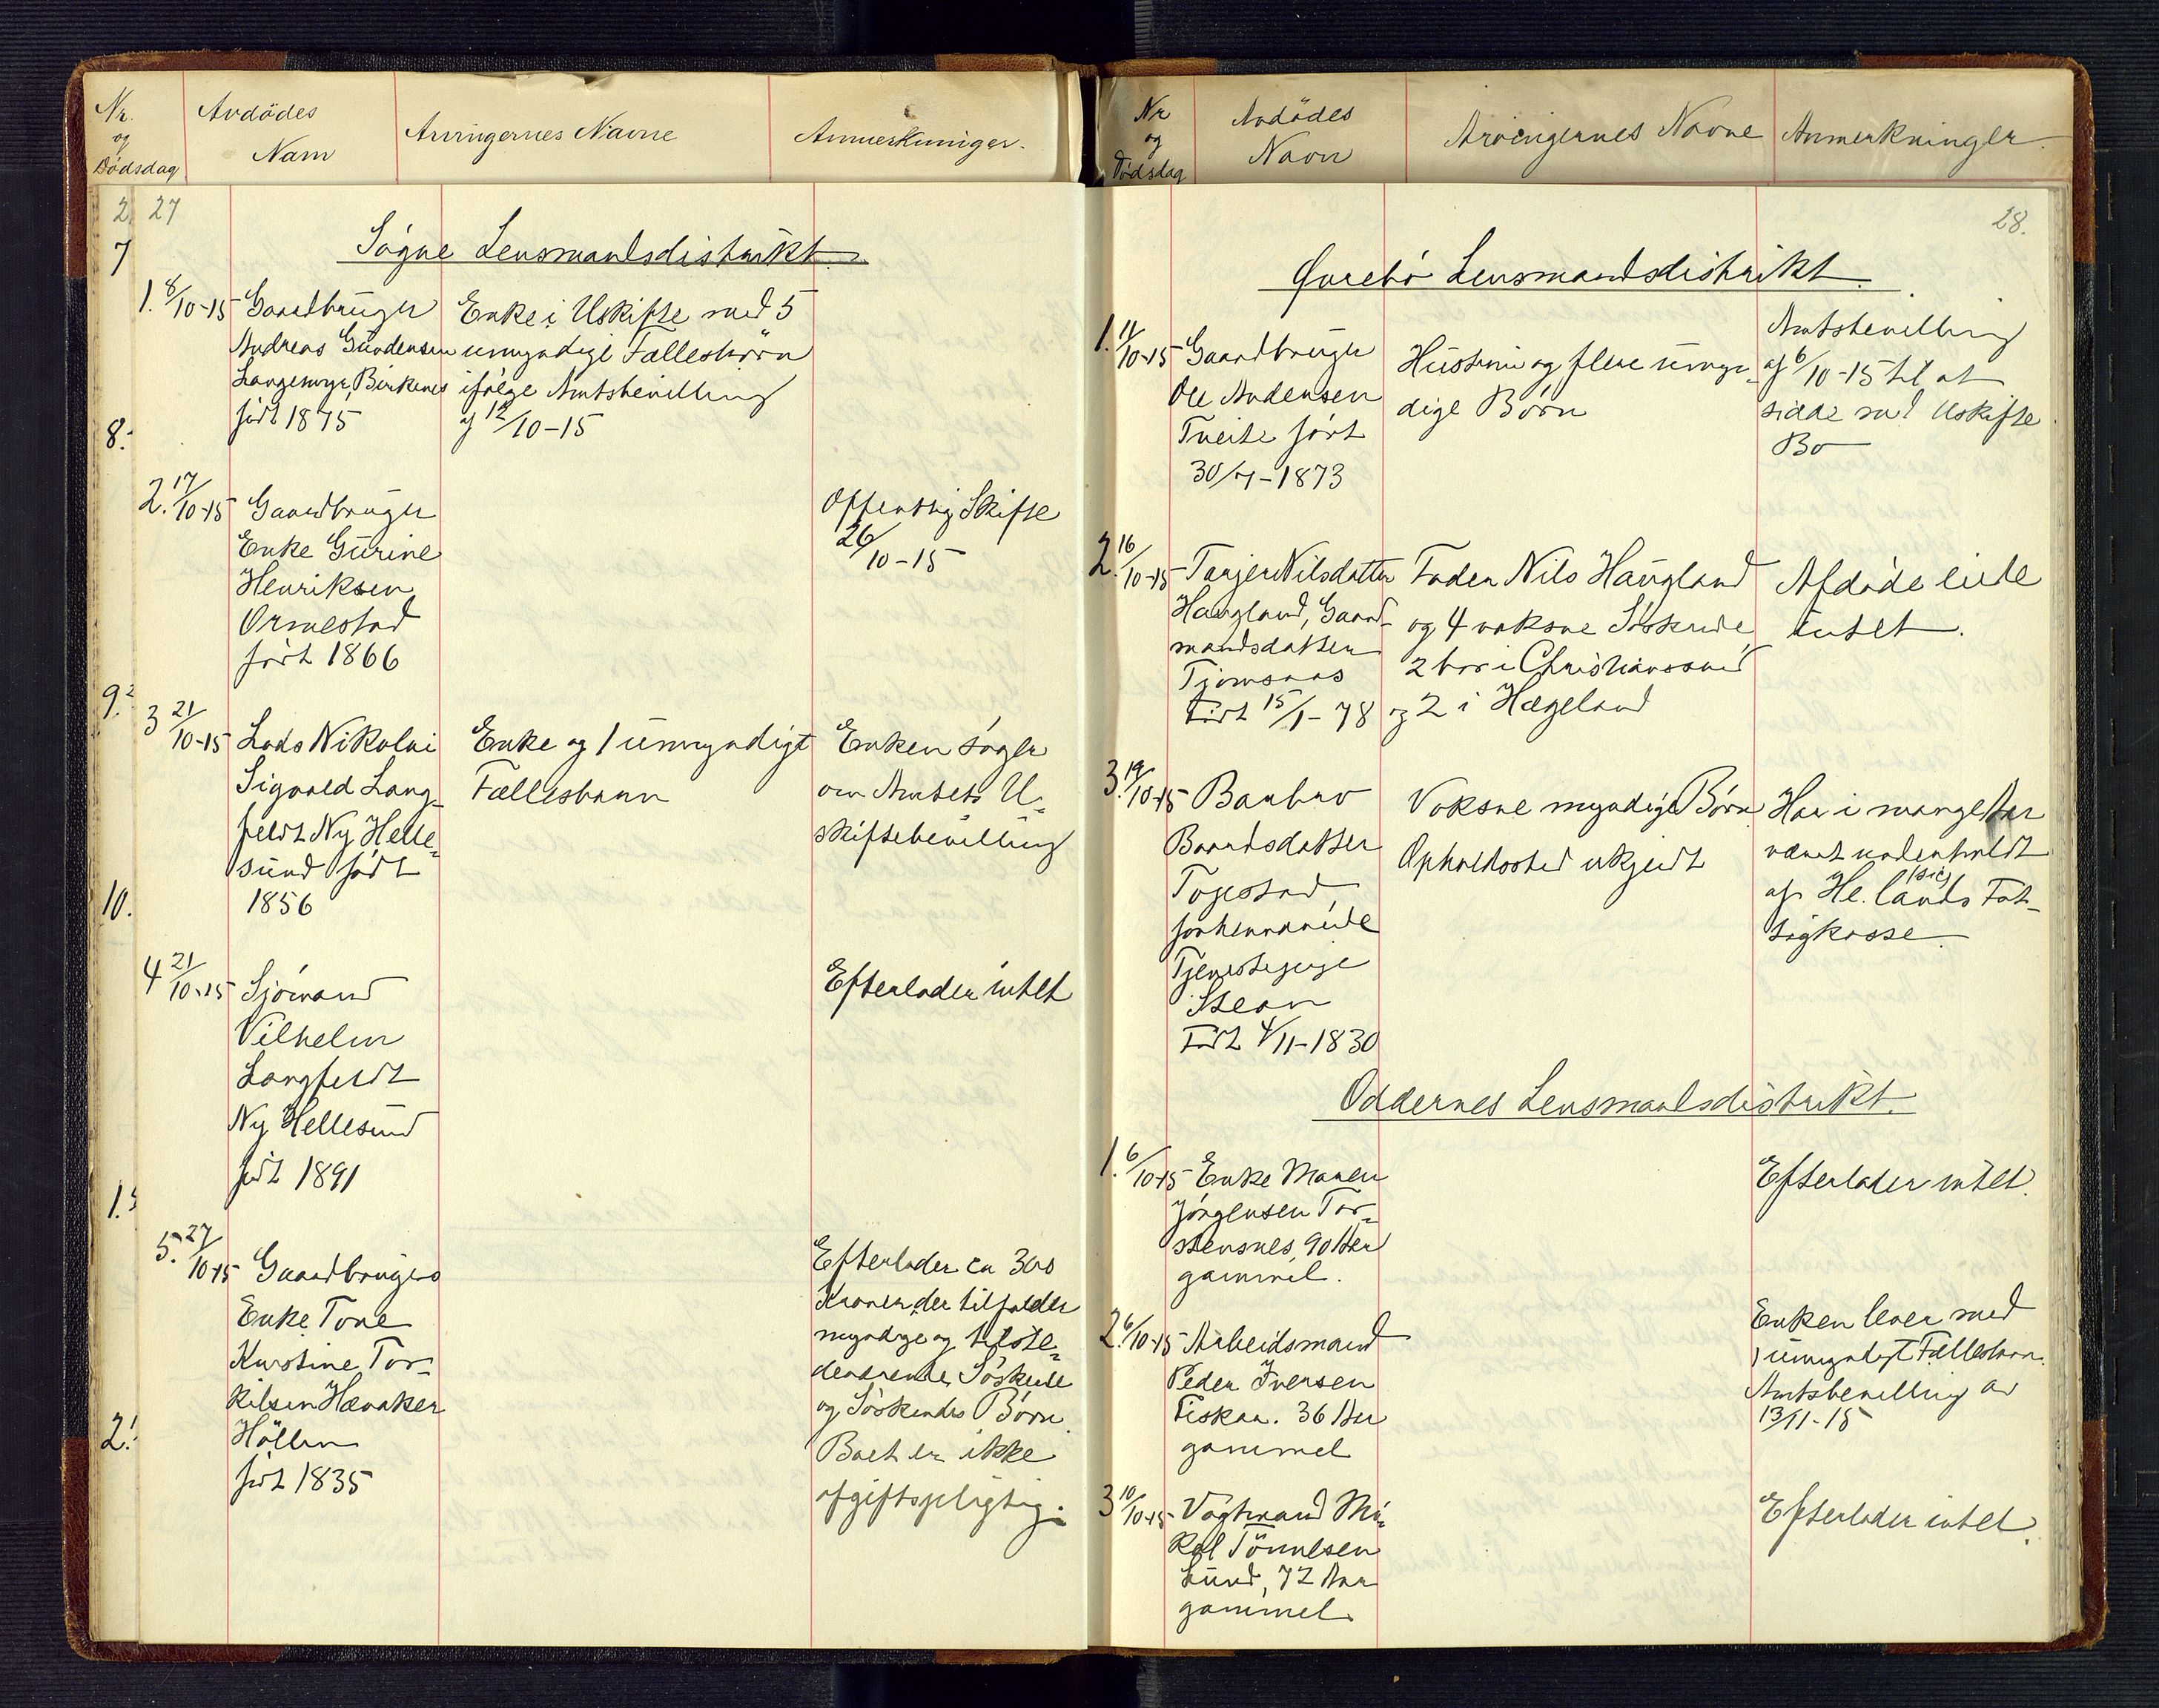 Nr.
og
Dödsdag
Avdödes
Navn
Arvingernes Navne
Anmerkninger.
27
Søgne Lensmandsdistrikt.
1. 8/10-15
Gaardbruger
Andreas Gundersen
Langemyr, Birkenes
født 1875
Enke i Uskifte med 5
umyndige Fællesbørn
ifølge Amtsbevilling
af 12/10-15
2. 17/10-15
Gaardbruger
Enke Gurine
Henriksen
Ormestad
født 1866
Offentlig Skifte
26/10-15
3 21/10-15
Lods Nikolai
Sigvald Lang-
feldt Ny Helle-
sund født
1856
Enke og 1 umyndigt
Fællesbarn
Enken søger
om Amtets U-
skiftebevilling
4 21/10-15
Sjömand
Vilhelm
Langfeldt
Ny Hellesund
født 1891
Efterlader intet
5. 27/10-15
Gaardbrugers
Enke Tone
Kirstine Tor-
kilsen Hævaker
Höllen
født 1835
Efterlader ca 300
Kroner, der tilfalder
myndige og tilste-
deværende Søskende
og Søskendes Börn.
Boet er ikke
afgiftspligtig.
7
8.
9.
10.
1.
2.
Nr
og
Dödsdag
Avdödes
Navn
Arvingernes Navne
Anmerkninger.
28.
Øvrebö Lensmandsdistrikt.
1. 11/10-15
Gaardbruger
Ole Andersen
Tveite født
30/7-1873
Hustru og flere umyn-
dige Børn
Amtsbevilling
af 6/10-15 til at
sidde med Uskifte
Bo
2. 16/10-15
Tarjer Nilsdatter
Haugland, Gaard-
mandsdatter
Tjomsaas
Født 15/1-78
Fader Nils Haugland
og 4 voksne Søskende,
2 bor i Christianssand
og 2 i Hægeland
Afdøde eiede
intet.
3. 19/10-15
Barbro
Baardsdatter
Togestad,
forhenværende
Tjenestepige
Steon
Født 4/11-1830
Voksne myndige Børn
Opholdssted ukjendt
Har i mange Aar
været underholdt
af He. lands (sic) Fat-
tigkasse.
Oddernes Lensmandsdistrikt.
1. 6/10-15
Enke Maren
Jörgensen Tor-
stensnes, 90 Aar
gammel.
Efterlader intet.
2. 6/10-15
Arbeidsmand
Peder Iversen
Fiskaa. 36 Aar
gammel
Enken lever med
1 umyndigt Fællesbarn.
Amtsbevilling av
13/11-15
3 10/10-15
Vagtmand Mi-
kal Tönnesen
Lund, 72 Aar
gammel
Efterlader intet.